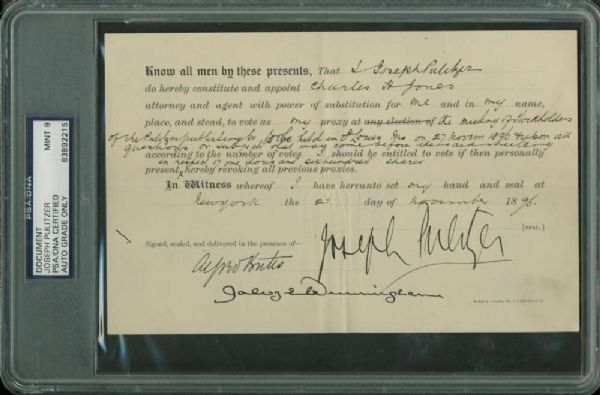 PSA/DNA
DOCUMENT
JOSEPH PULITZER
PSA/DNA CERTIFIED
AUTO GRADE ONLY
MINT 9
83892215
Know all men by these presents, That I Joseph Pulitzer
do hereby constitute and appoint Charles H Jones
attorney and agent with power of substitution for me and in my name,
place, and stead, to vote as my proxy at any election of the meeting of stockholders
of the Pulitzer Publishing Co to be held in St Louis Mo on 27 Novem 1896 & upon all
questions or subjects that may come before the said meeting
according to the number of votes I should be entitled to vote if then personally
in respect of one thousand six hundred shares
present, hereby revoking all previous proxies.
In Witness whereof I have hereunto set my hand and seal at
New York the day of November 1896.
[SEAL]
Joseph Pulitzer
Signed, sealed, and delivered in the presence of—
Alfred Butes
Cunningham